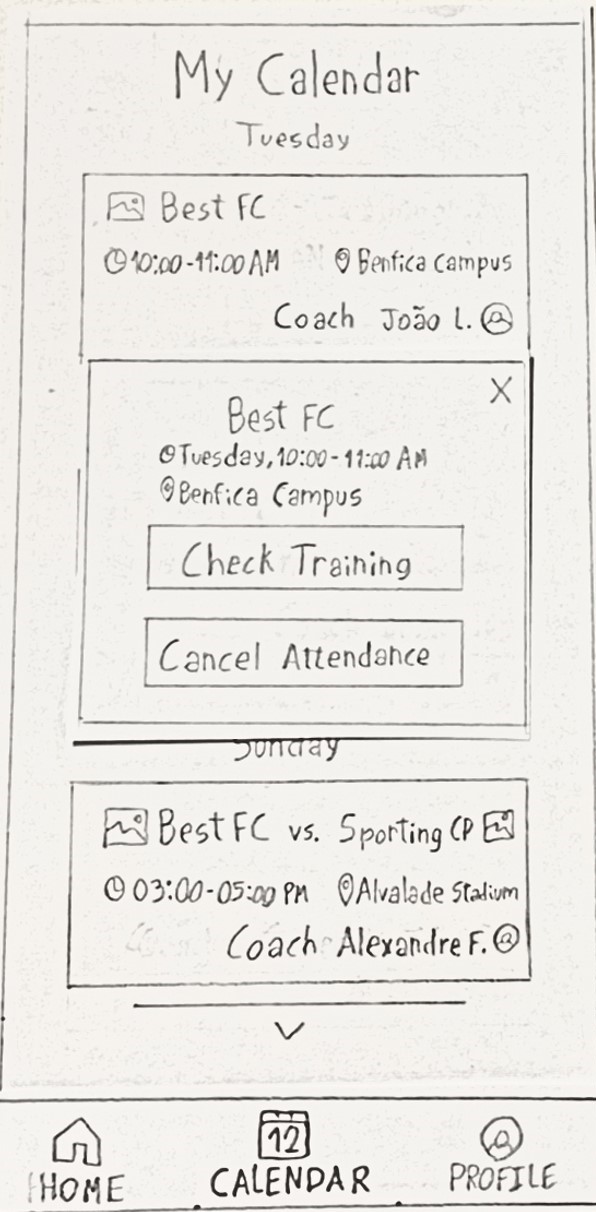 My Calendar
Tuesday
Best FC
10:00-11:00 AM Benfica Campus
Coach João L.
X
Best FC
Tuesday, 10:00-11:00 AM
Benfica Campus
Check Training
Cancel Attendance
Sunday
Best FC vs. Sporting CP
03:00-05:00 PM Alvalade Stadium
Coach Alexandre F.
12
HOME CALENDAR PROFILE